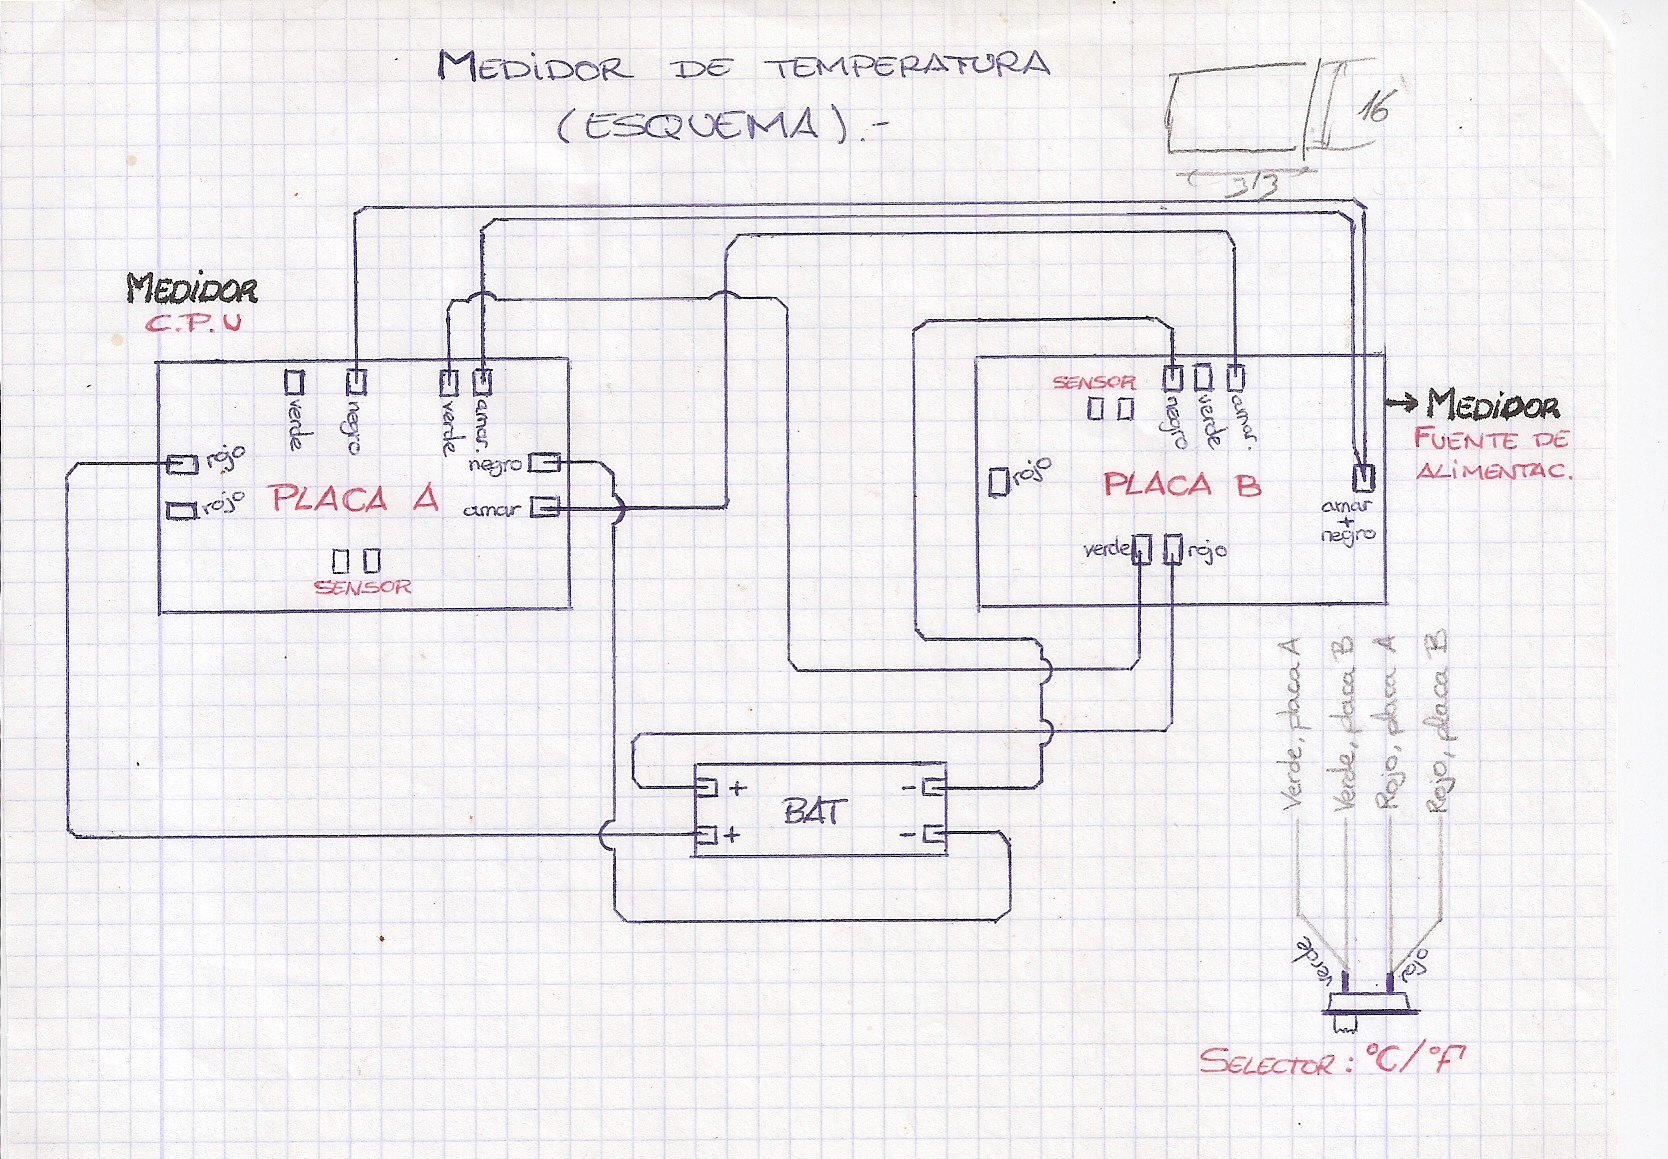 MEDIDOR DE TEMPERATURA
(ESQUEMA).-
16
MEDIDOR
C.P.U
verde
negro
verde
amar.
rojo
rojo
negro
amar
PLACA A
SENSOR
SENSOR
negro
verde
amar.
rojo
PLACA B
amar
+
negro
verde
rojo
→ MEDIDOR
FUENTE DE
ALIMENTAC.
+ -
BAT
+ -
Verde, placa A
Verde, placa B
Rojo, placa A
Rojo, placa B
verde
rojo
SELECTOR: °C/°F